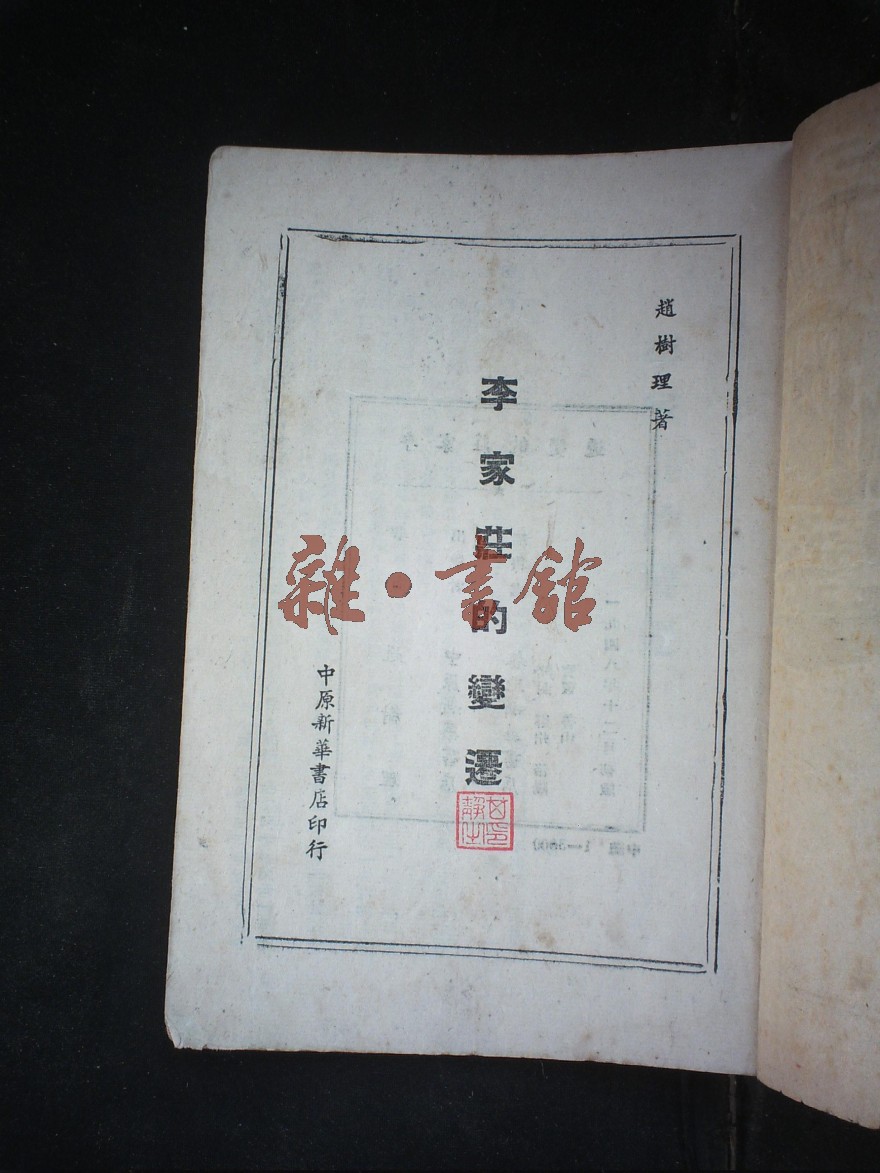 趙樹理著
李家莊的變遷
中原新華書店印行
雜·書館